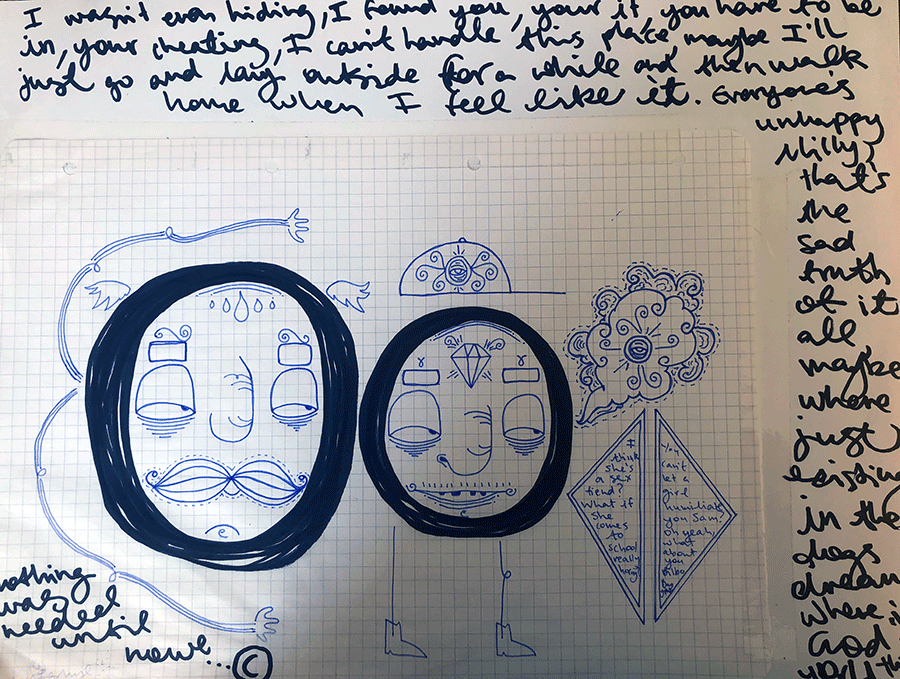 I wasn't even hiding, I found you, your it, you have to be
in, your cheating, I can't handle this place, maybe I'll
just go and lay outside for a while and then walk
home when I feel like it. Everyone's
unhappy
Milly,
that's
the
sad
truth
of it
all,
maybe
where
just
existing
in the
dogs
dream
where
God
world
I
think
she's
a sex
fiend?
What if
she
comes
to
school
really
horny?
You
can't
let a
girl
humiliate
you Sam.
oh yeah,
what
about
you
nothing
was
needed
until
nowe...
©